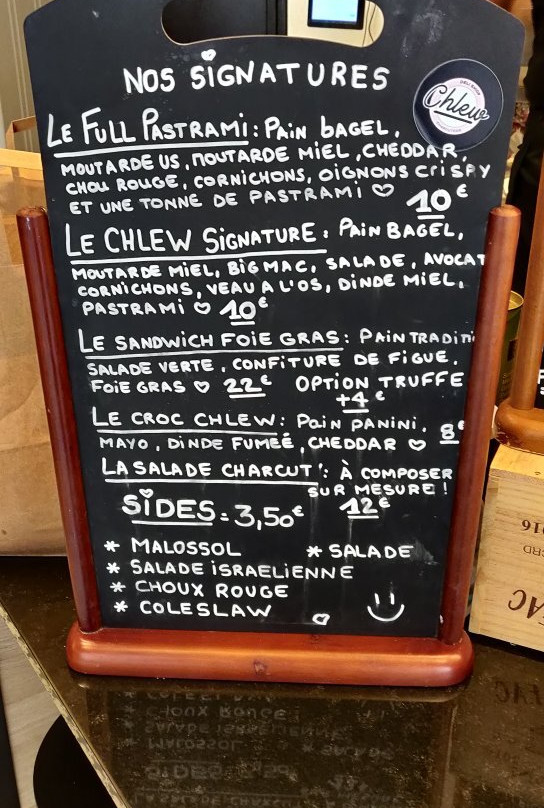 NOS SIGNATURES
Chlew
LE FULL PASTRAMI : PAIN BAGEL,
MOUTARDE US, MOUTARDE MIEL, CHEDDAR,
CHOU ROUGE, CORNICHONS, OIGNONS CRISPY
ET UNE TONNE DE PASTRAMI ♡ 10€
LE CHLEW SIGNATURE : PAIN BAGEL,
MOUTARDE MIEL, BIG MAC, SALADE, AVOCAT
CORNICHONS, VEAU A L'OS, DINDE MIEL,
PASTRAMI ♡ 10€
LE SANDWICH FOIE GRAS : PAIN TRADITI
SALADE VERTE, CONFITURE DE FIGUE,
FOIE GRAS ♡ 22€ OPTION TRUFFE
+4€
LE CROC CHLEW : PAIN PANINI,
MAYO, DINDE FUMEÉ, CHEDDAR ♡ 8€
LA SALADE CHARCUT' : À COMPOSER
SUR MESURE !
12€
SIDES : 3,50€
* MALOSSOL * SALADE
* SALADE ISRAELIENNE
* CHOUX ROUGE
* COLESLAW